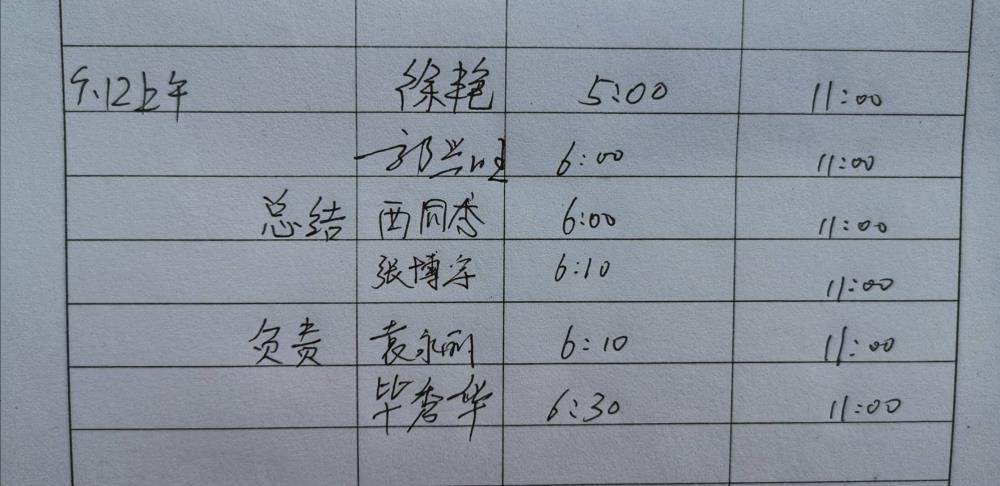 9.12上午 徐艳 5:00 11:00
郭兰旺 6:00 11:00
总结 西同秀 6:00 11:00
张博宇 6:10 11:00
负责 袁永丽 6:10 11:00
毕秀华 6:30 11:00